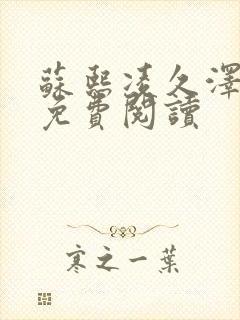 蘇熙凌久澤
免費閱讀
寒之一葉